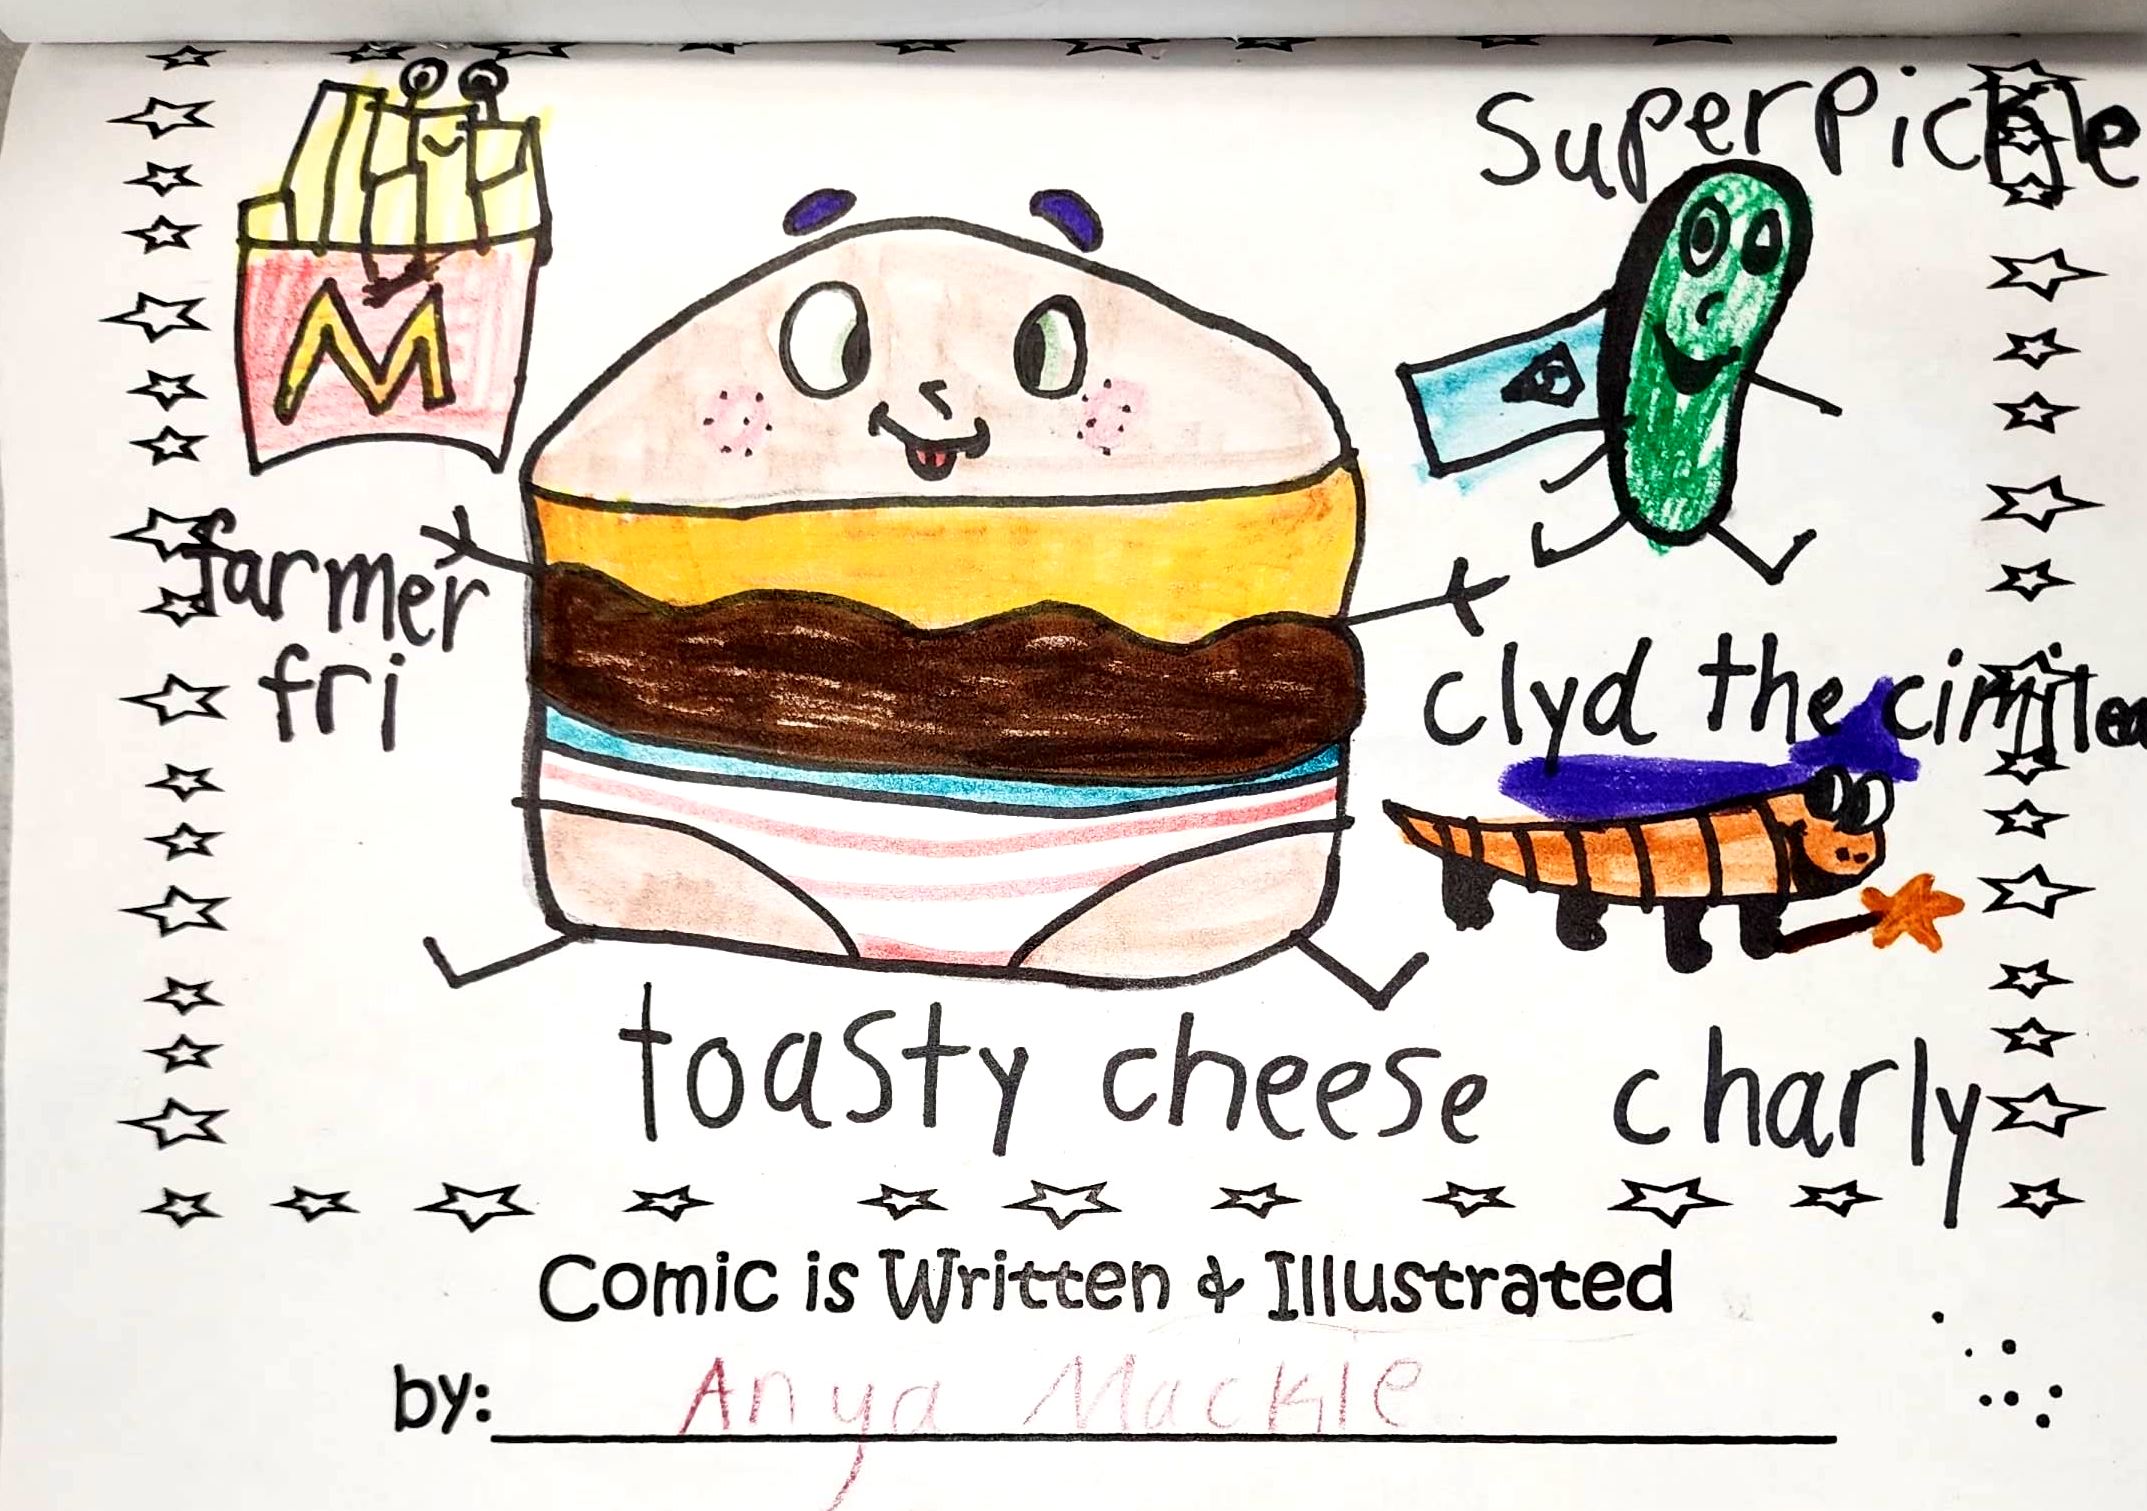 Superpickle
M
farmer
fri
clyd the cimilea
toasty cheese charly
Comic is Written & Illustrated
by: Anya Mackle